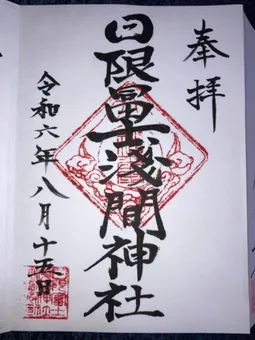 奉拝
日限冨士淺間神社
令和六年八月十五日